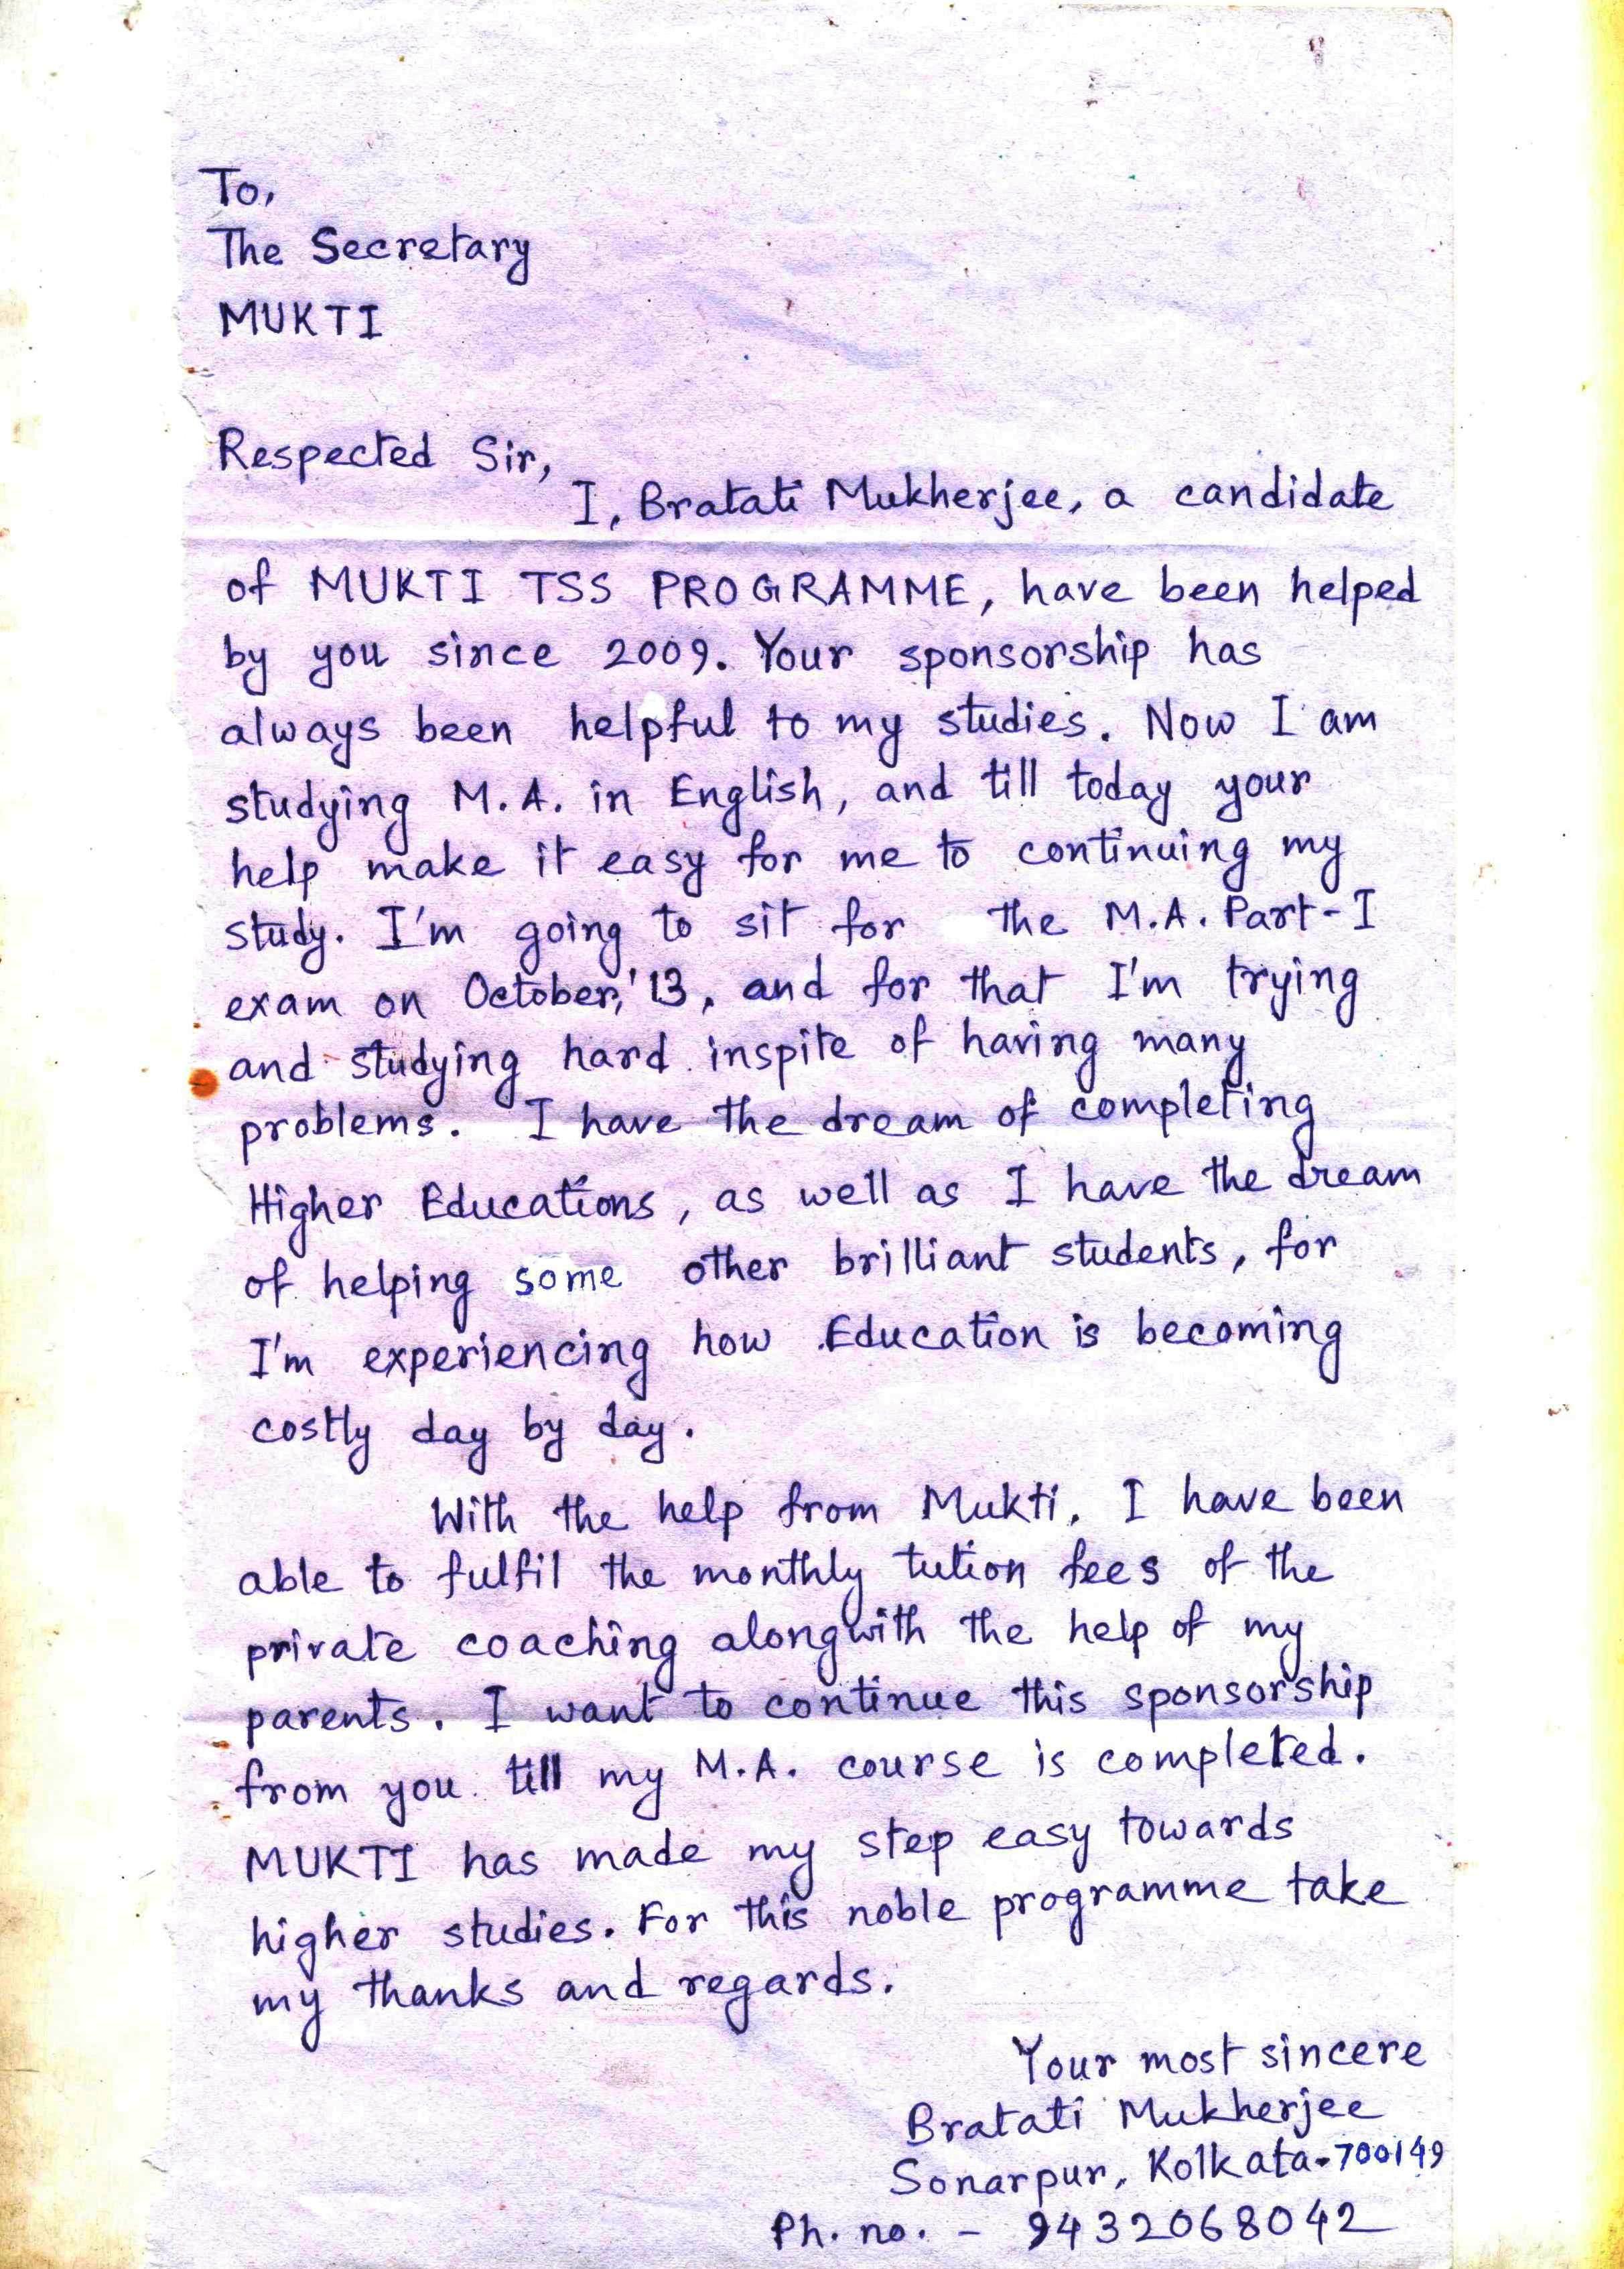 To,
The Secretary
MUKTI
Respected Sir,
I, Bratati Mukherjee, a candidate
of MUKTI TSS PROGRAMME, have been helped
by you since 2009. Your sponsorship has
always been helpful to my studies. Now I am
studying M.A. in English, and till today your
help make it easy for me to continuing my
study. I'm going to sit for the M.A. Part-I
exam on October,'13, and for that I'm trying
and studying hard inspite of having many
problems. I have the dream of completing
Higher Educations, as well as I have the dream
of helping some other brilliant students, for
I'm experiencing how Education is becoming
costly day by day.
With the help from Mukti, I have been
able to fulfil the monthly tution fees of the
private coaching alongwith the help of my
parents. I want to continue this sponsorship
from you till my M.A. course is completed.
MUKTI has made my step easy towards
higher studies. For this noble programme take
my thanks and regards.
Your most sincere
Bratati Mukherjee
Sonarpur, Kolkata-700149
Ph. no. - 9432068042